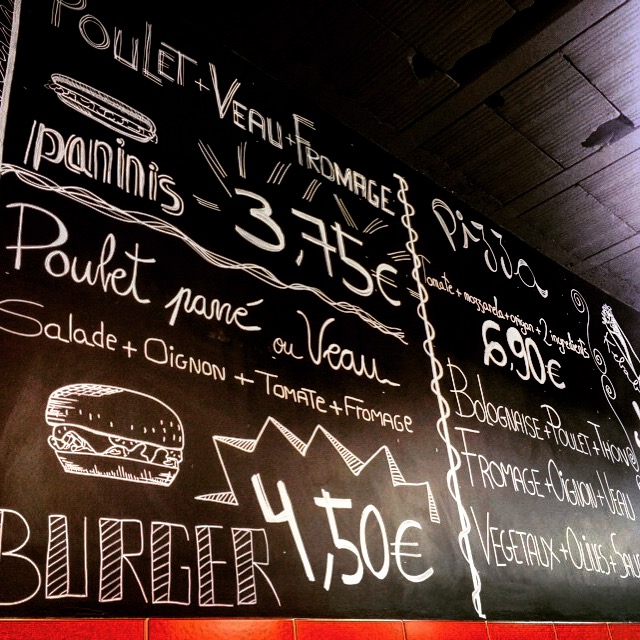 Poulet+Veau+Fromage
paninis
3,75€
Poulet pané
ou Veau
Salade+Oignon+Tomate+Fromage
BURGER
4,50€
Pizza
Tomate+mozzarela+origan+2 ingredients
6,90€
Bolognaise+Poulet+Thon
Fromage+Oignon+Veau
Vegetaux+Olives+